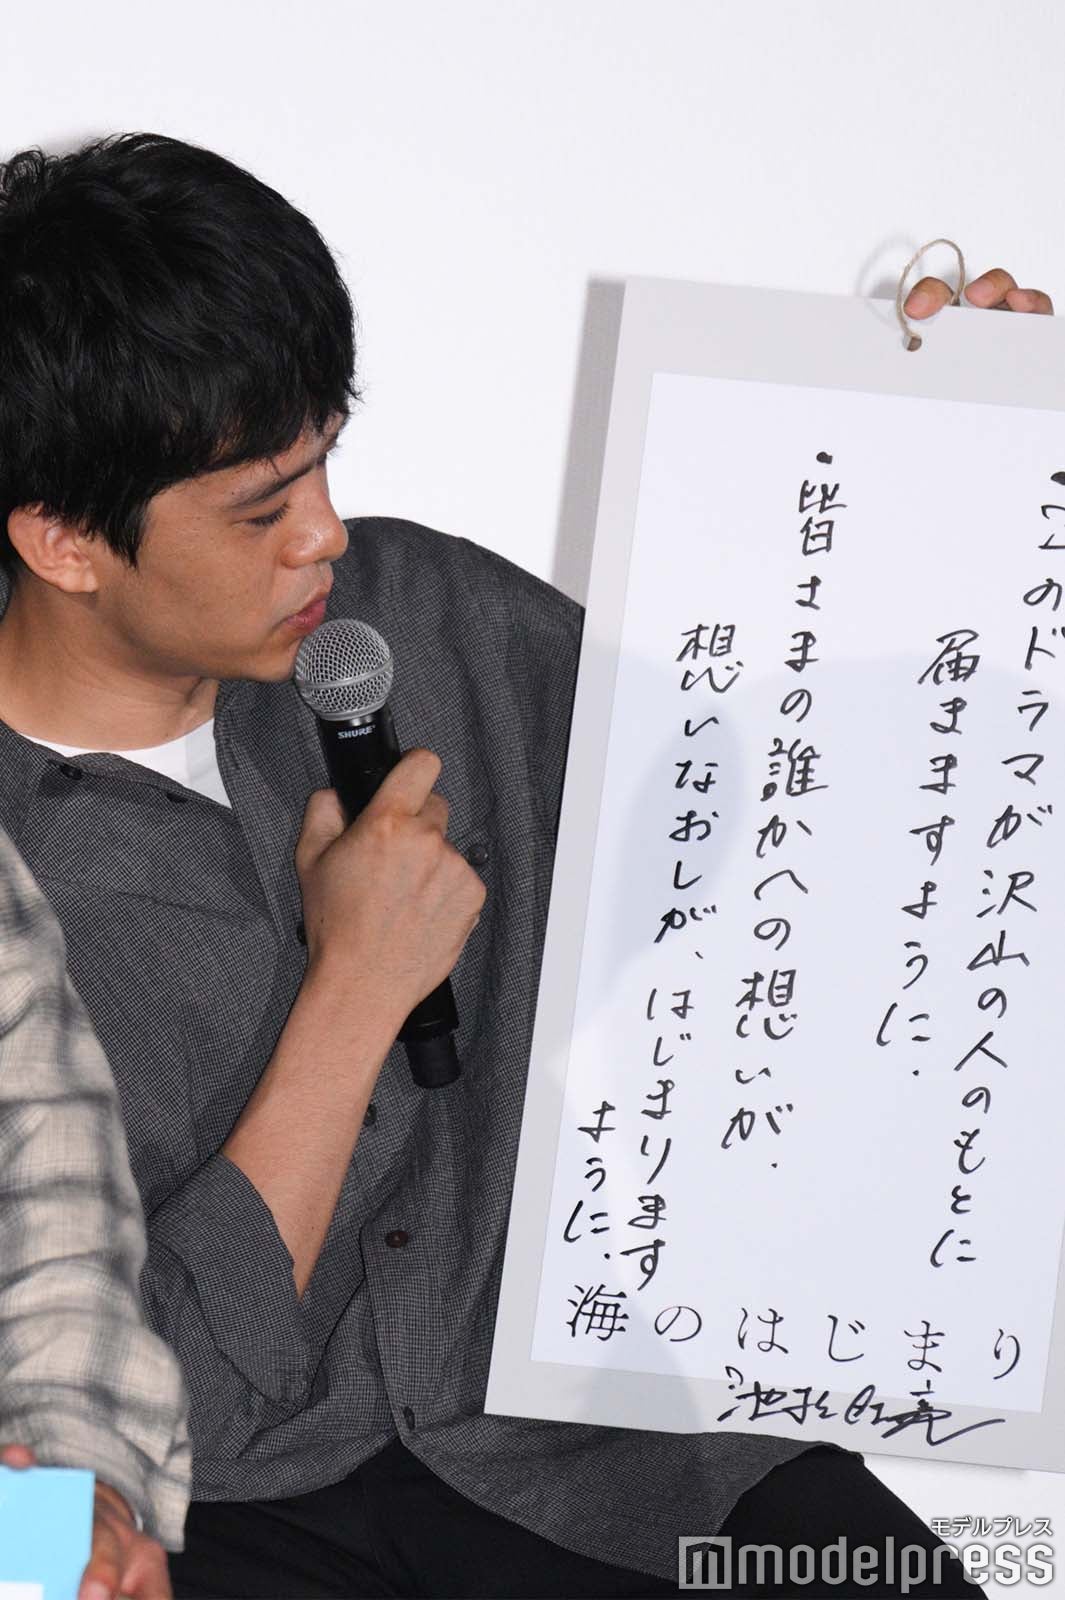 ・このドラマが沢山の人のもとに
届きますように.
・皆さまの誰かへの想いが.
想いなおしが、はじまります
ように.
海のはじまり
池松壮亮
SHURE
モデルプレス
modelpress